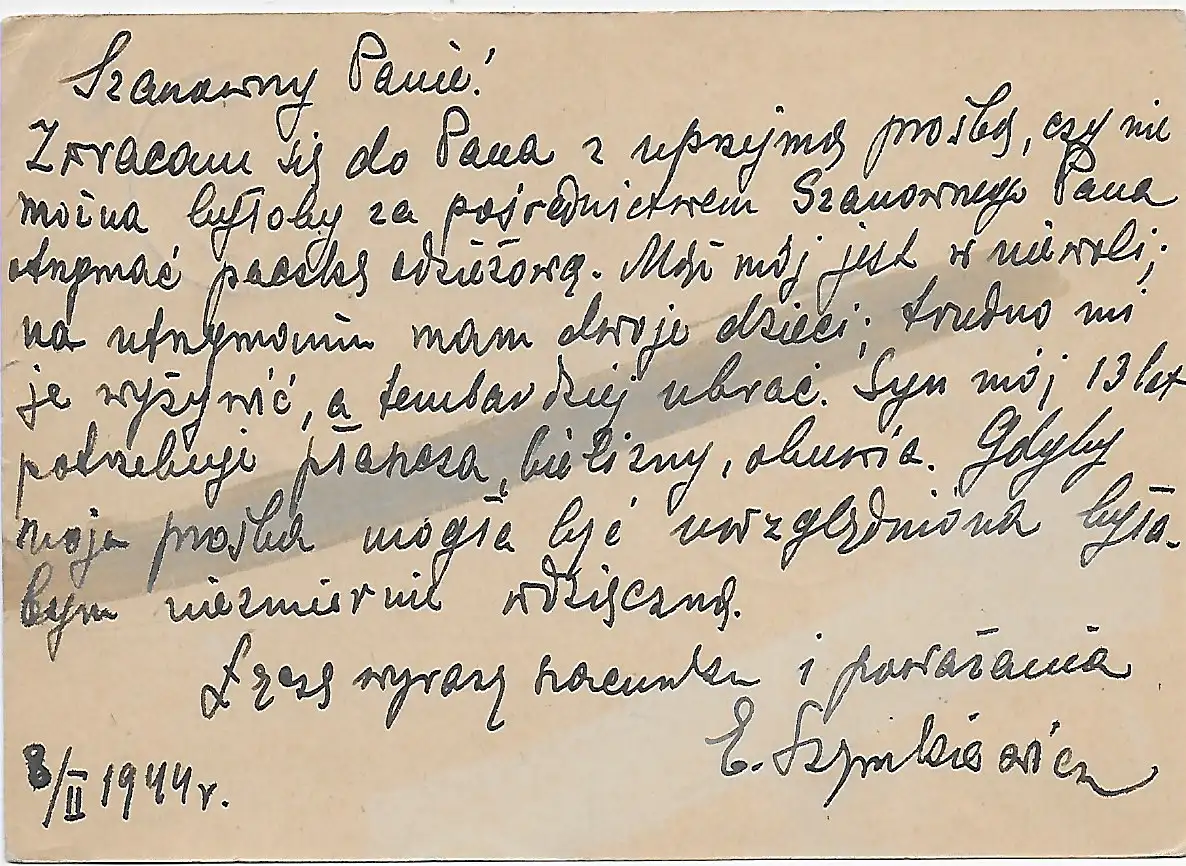 Szanowny Panie!
Zwracam się do Pana z uprzejmą prośbą, czy nie
można byłoby za pośrednictwem Szanownego Pana
otrzymać paczkę odzieżową. Mąż mój jest w niewoli;
na utrzymaniu mam dwoje dzieci; trudno mi
je wyżywić, a tembardziej ubrać. Syn mój 13 lat
potrzebuje płaszcza, bielizny, obuwia. Gdyby
moja prośba mogła być uwzględniona była-
bym niezmiernie wdzięczną.
Łączę wyrazy szacunku i poważania
E. Szynkiewicz
8/II 1944 r.